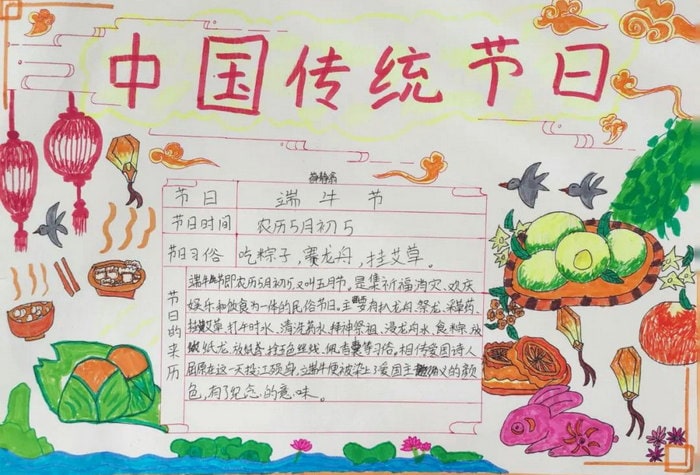 中国传统节日
节日 端午节
节日时间 农历5月初5
节日习俗 吃粽子,赛龙舟,挂艾草。
节日的来历
端午节即农历5月初5又叫五月节,是集祈福消灾、欢庆
娱乐和饮食为一体的民俗节日。主要有扒龙舟、祭龙、采草药、
挂艾草、打午时水、洗草药水、拜神祭祖、浸龙舟水、食粽、放
纸龙、放纸鸢、拴五色丝线、佩香囊等习俗。相传爱国诗人
屈原在这一天投江殉身,端午便被染上了爱国主义的颜
色,有了纪念的意味。